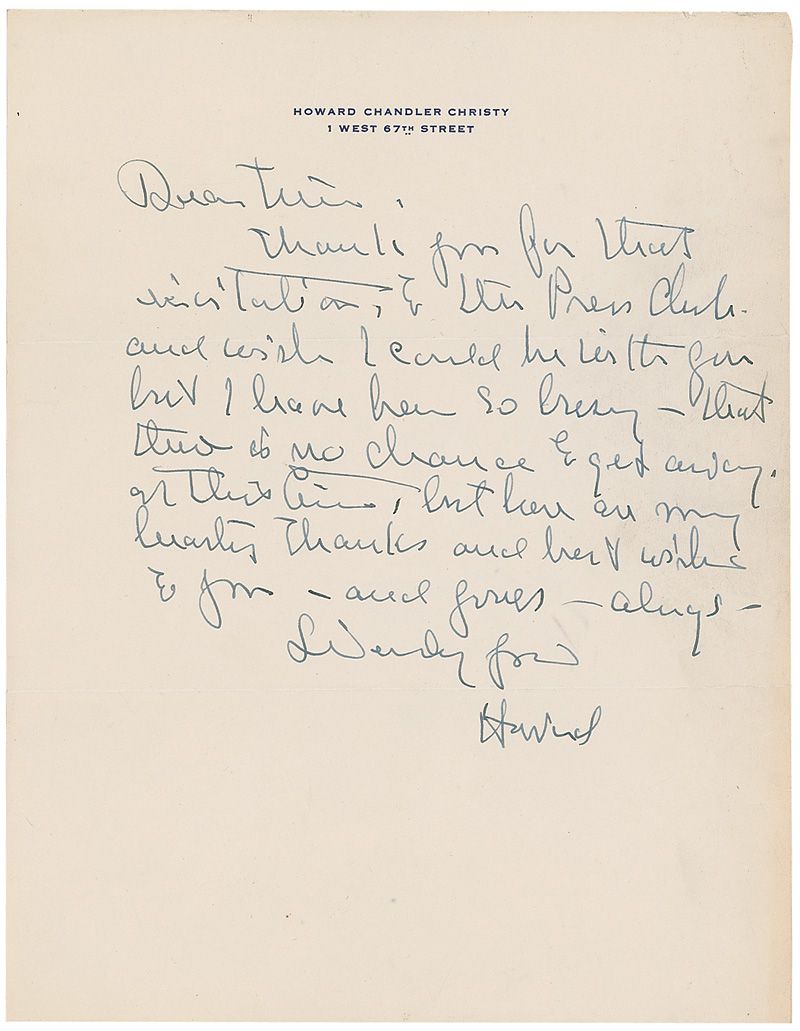 HOWARD CHANDLER CHRISTY
1 WEST 67TH STREET
Dear
Thank you for that
invitation, to the Press Club.
and wish I could be with you
but I have been so busy – that
there is no chance to get away.
at this time, but here are my
hearty thanks and best wishes
to you – and yours – always –
Sincerely yours
Howard